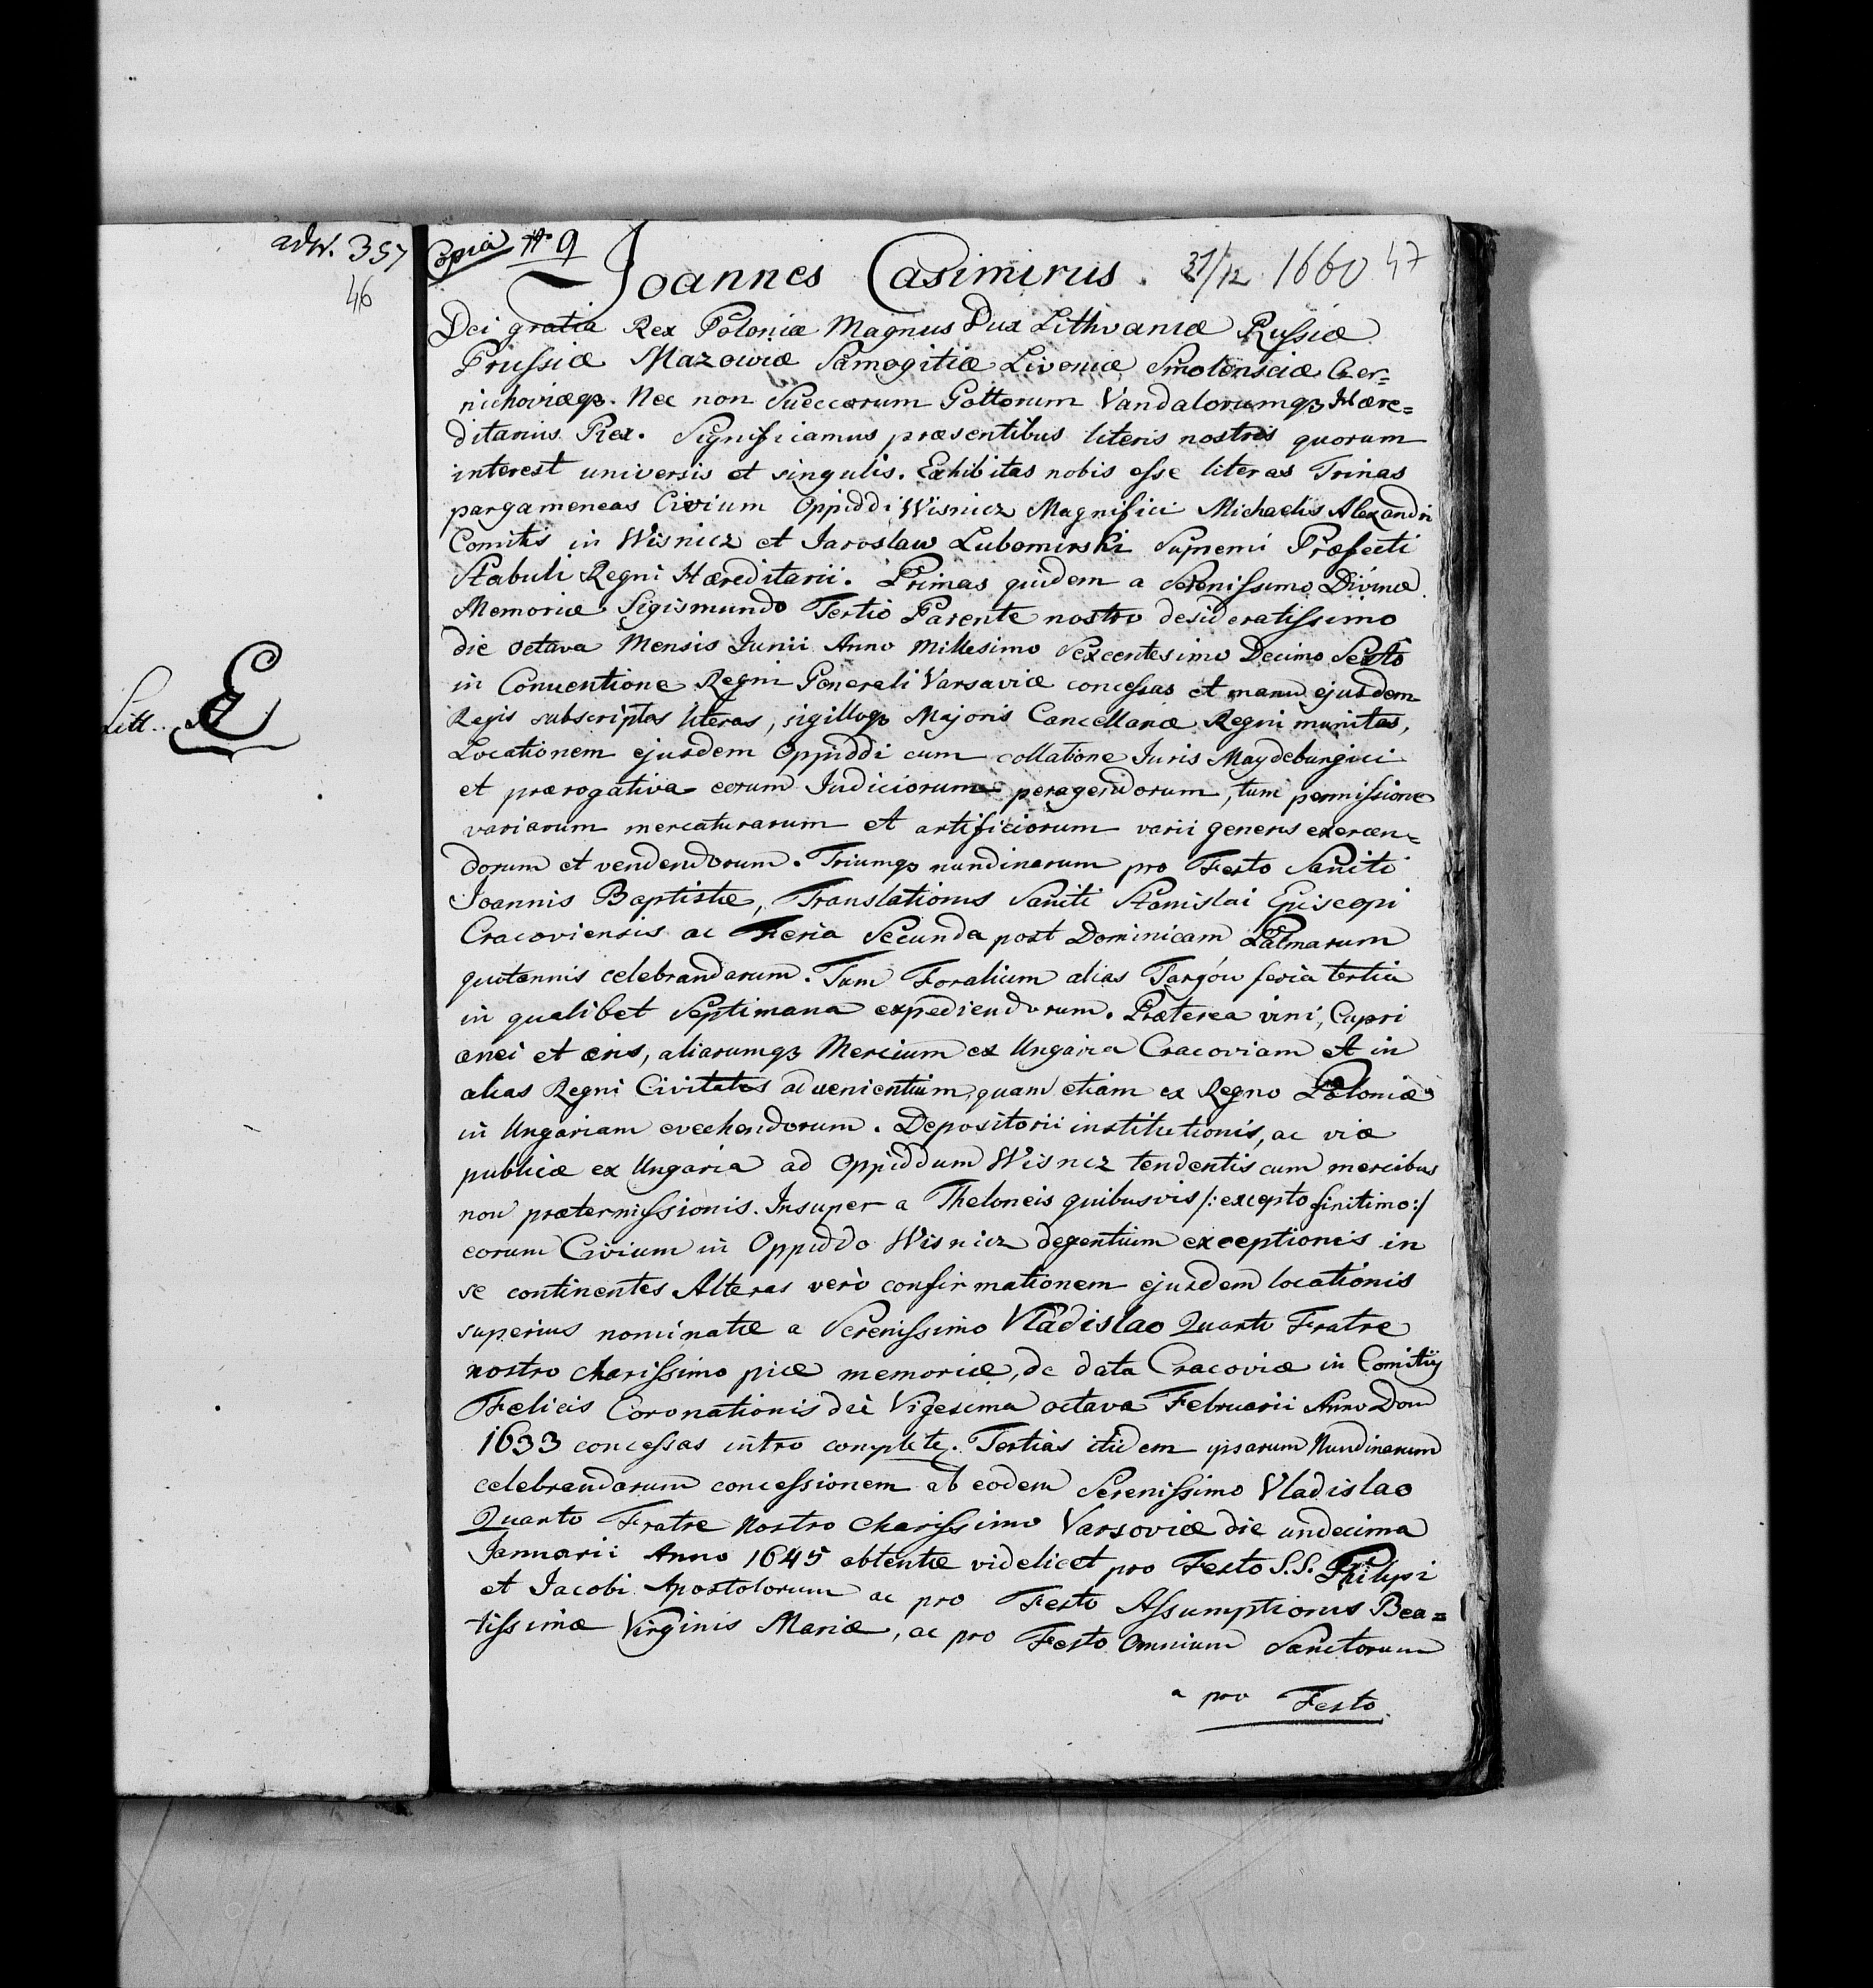 adN. 357
46
Litt. E
Copia # 9
Joannes Casimirus. 31/12 1660 47
Dei gratia Rex Poloniæ Magnus Dux Lithvaniæ Russiæ
Prussiæ Mazowiæ Samogitiæ Livoniæ Smolensciæ Czer=
nichoviæqz. Nec non Sueccorum Gottorum Vandalorumqz Hære=
ditarius Rex. Significamus præsentibus literis nostris quorum
interest universis et singulis. Exhibitas nobis esse literas Trinas
pargameneas Civium Oppiddi Wisnicz Magnifici Michaelis Alexandri
Comitis in Wisnicz et Jaroslaw Lubomirski Supremi Præfecti
Stabuli Regni Hæreditarii. Primas quidem a Serenissimo Divinæ
Memoriæ Sigismundo Tertio Parente nostro desideratissimo
die octava Mensis Junii Anno Millesimo Sexcentesimo Decimo Sexto
in Conventione Regni Generali Varsaviæ concessas et manu ejusdem
Regis subscriptas literas, sigilloqz Majoris Cancellariæ Regni munitas,
Locationem ejusdem Oppiddi cum collatione Juris Maydeburgici
et prærogativa eorum Judiciorum peragendorum, tum permissione
variarum mercaturarum et artificiorum varii generis exercen=
dorum et vendendorum. Triumqz nundinarum pro Festo Sancti
Joannis Baptistæ, Translationis Sancti Stanislai Episcopi
Cracoviensis ac Feria Secunda post Dominicam Palmarum
quotannis celebrandarum. Tum Foralium alias Targów feria tertia
in qualibet Septimana expediendorum. Præterea vini, Cupri
ænei et æris, aliarumqz Mercium ex Ungaria Cracoviam et in
alias Regni Civitates advenientium, quam etiam ex Regno Poloniæ
in Ungariam evechendorum. Depositorii institutionis, ac viæ
publicæ ex Ungaria ad Oppiddum Wisnicz tendentis cum mercibus
non prætermissionis. Insuper a Theloneis quibusvis /: excepto finitimo :/
eorum Civium in Oppiddo Wisnicz degentium exceptionis in
se continentes Alteras verò confirmationem ejusdem locationis
superius nominatæ a Serenissimo Vladislao Quarto Fratre
nostro charissimo piæ memoriæ, de data Cracoviæ in Comitiis
Fælicis Coronationis dei Vigesima octava Februarii Anno Dom
1633 concessas intro complete. Tertias itidem ipsarum Nundinarum
celebrandarum concessionem ab eodem Serenissimo Vladislao
Quarto Fratre Nostro Charissimo Varsoviæ die undecima
Januarii Anno 1645 obtentæ videlicet pro Festo S.S. Philipi
et Jacobi Apostolorum ac pro Festo Assumptionis Bea=
tissimæ Virginis Mariæ, ac pro Festo Omnium Sanctorum
a pro Festo